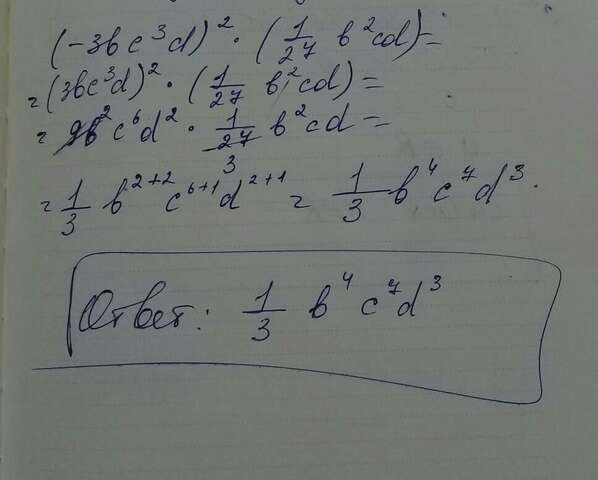 (-3bc³d)² · (1/27 b²cd) =
= (3bc³d)² · (1/27 b²cd) =
= 9b²c⁶d² · 1/27 b²cd =
3
= 1/3 b²⁺²c⁶⁺¹d²⁺¹ = 1/3 b⁴c⁷d³.
Ответ: 1/3 b⁴c⁷d³